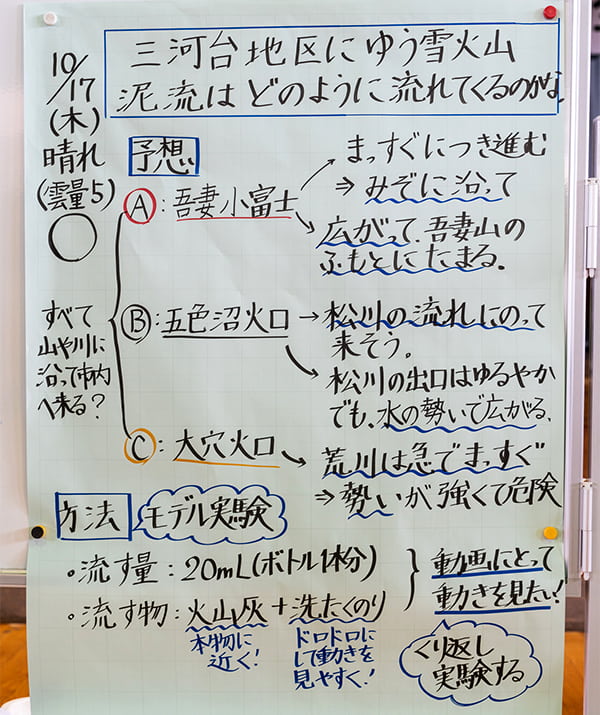 三河台地区にゆう雪火山
泥流はどのように流れてくるのかな
10/17
(木)
晴れ
(雲量5)
予想
すべて
山や川に
沿って市内
へ来る?
A:吾妻小富士
まっすぐにつき進む
⇒みぞに沿って
広がって、吾妻山の
ふもとにたまる。
B:五色沼火口
→松川の流れにのって
来そう。
松川の出口はゆるやか
でも、水の勢いで広がる。
C:大穴火口
荒川は急でまっすぐ
⇒勢いが強くて危険
方法
モデル実験
・流す量:20mL(ボトル1本分)
・流す物:火山灰+洗たくのり
本物に
近く!
ドロドロに
して動きを
見やすく!
動画にとって
動きを見たい!
くり返し
実験する